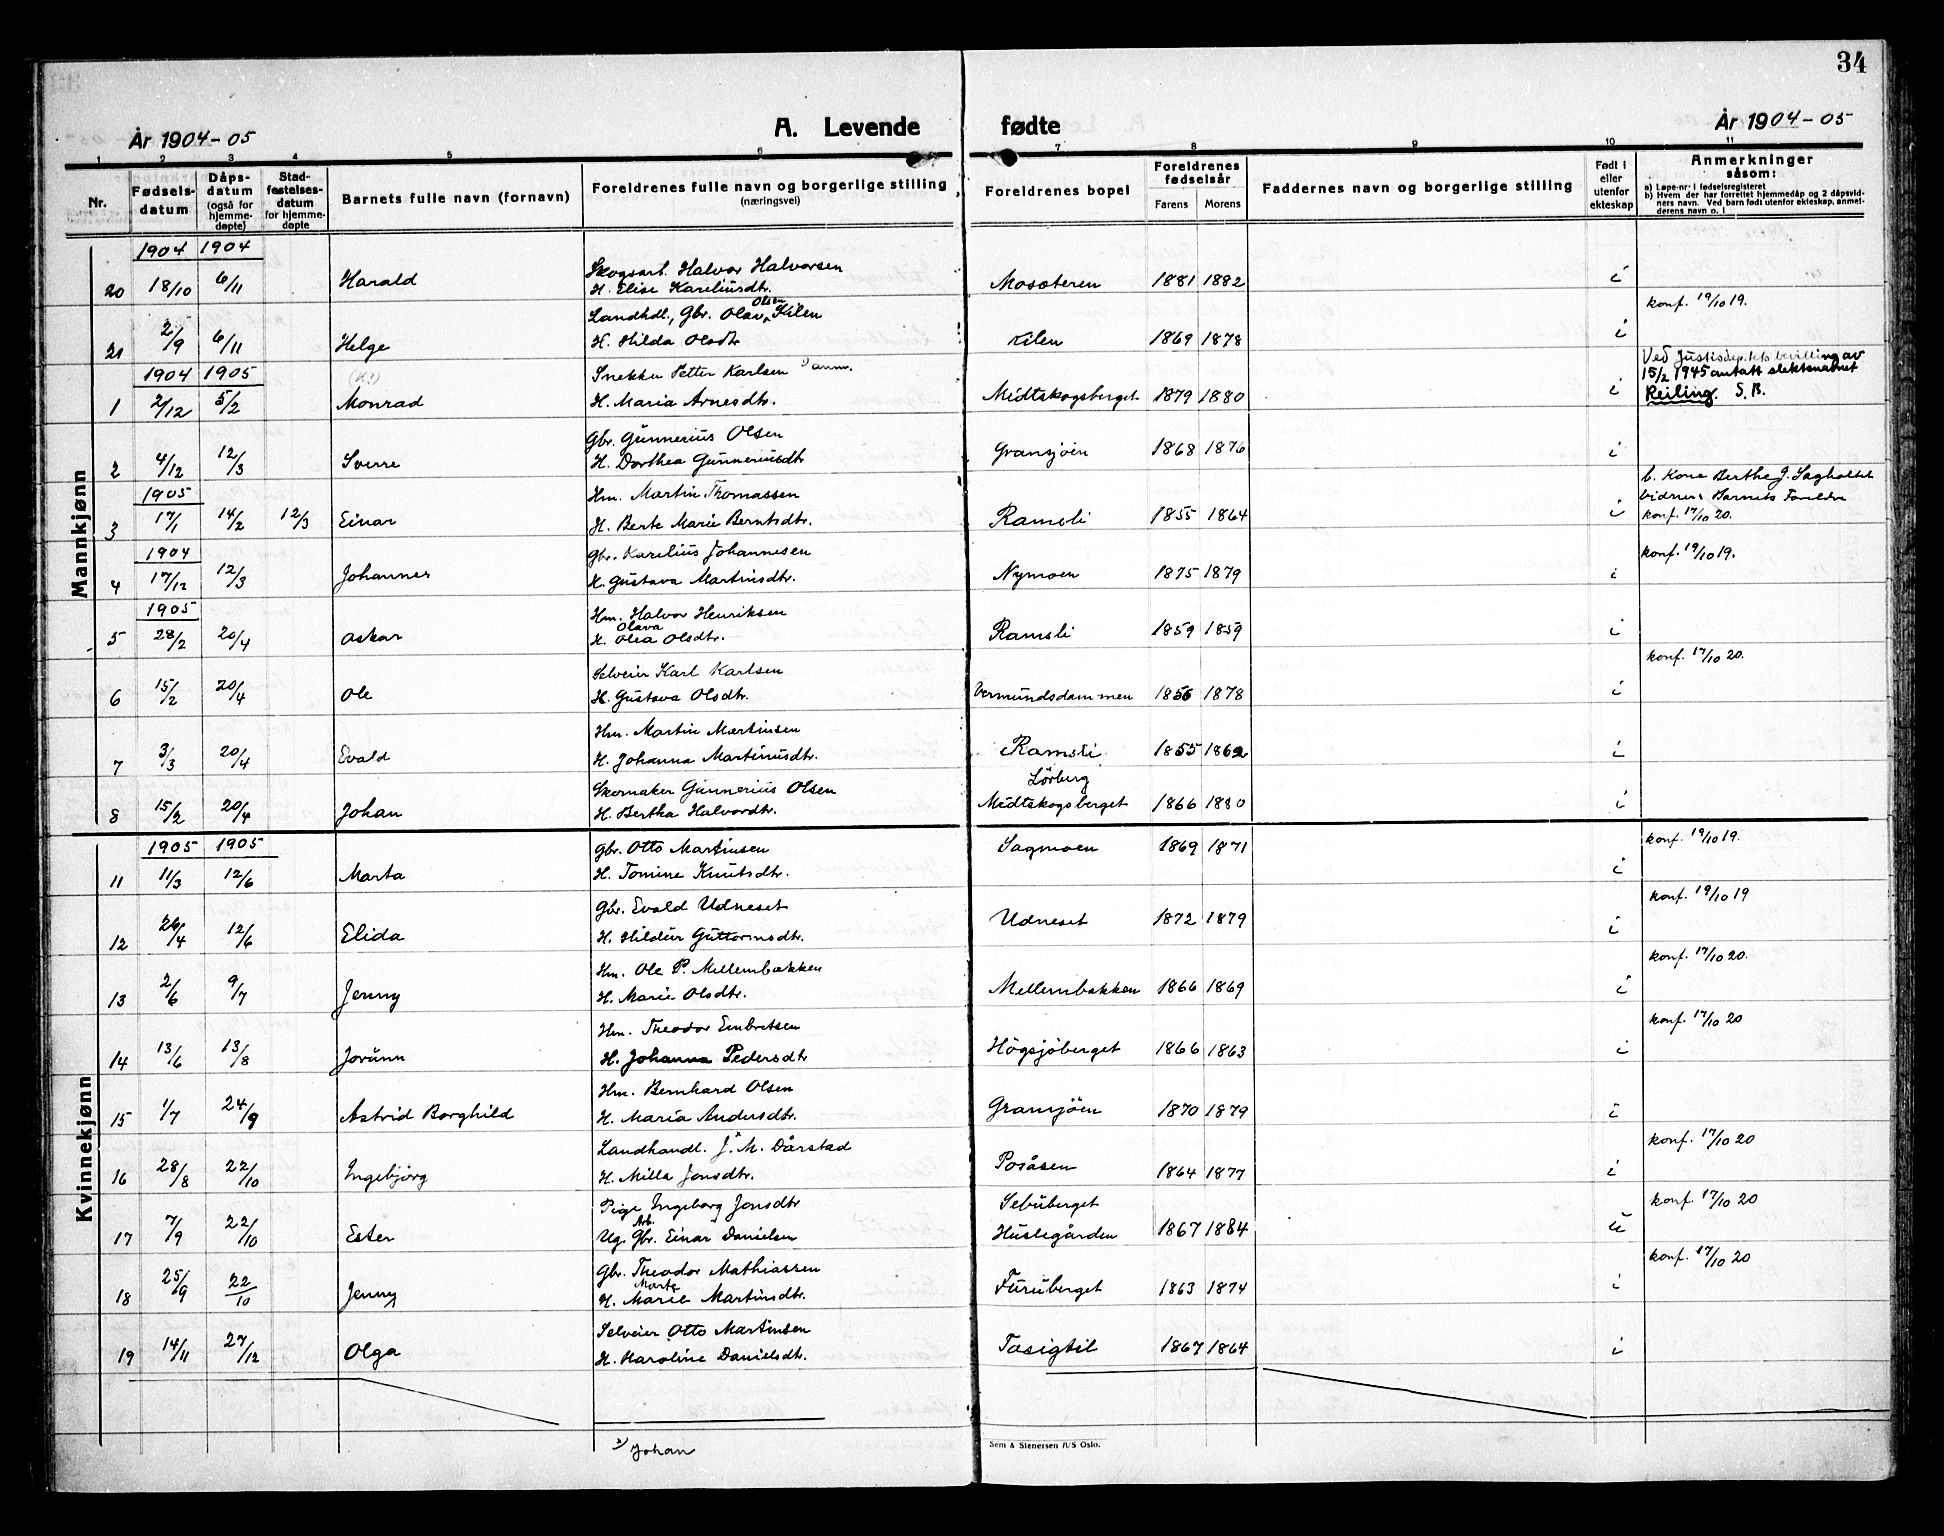 34
År 1904-05 A. Levende fødte År 1904-05
1 2 3 4 5 6 7 8 9 10 11
Nr. Fødselsdatum Dåpsdatum (også for hjemmedøpte) Stadfestelsesdatum for hjemmedøpte Barnets fulle navn (fornavn) Foreldrenes fulle navn og borgerlige stilling (næringsvei) Foreldrenes bopel Foreldrenes fødselsår Farens Morens Faddernes navn og borgerlige stilling Født i eller utenfor ekteskap Anmerkninger såsom:
a) Løpe-nr. i fødselsregisteret
b) Hvem der har forrettet hjemmedåp og 2 dåpsvidners navn. Ved barn født utenfor ekteskap, anmelderens navn o. l
Mannkjønn
1904 1904
Skogsarb. Halvor Halvorsen
20 18/10 6/11 Harald H. Elise Kareliusdtr. Mosæteren 1881 1882 i
Landhdl., Gbr. Olav Olsen Kilen konf. 19/10 19.
21 2/9 6/11 Helge H. Hilda Olsdtr Kilen 1869 1878 i
1904 1905 Snekker Petter Karlsen 1) anm. Ved Justisdep.tets bevilling av
15/2 1945 antatt slektsnavnet
1 2/12 5/2 Monrad H. Maria Arnesdtr. Midtskogsberget 1879 1880 i Reiling. S.B.
Gbr. Gunnerius Olsen
2 4/12 12/3 Sverre H. Dorthea Gunneriusdtr Gransjøen 1868 1876 i
1905 Hm. Martin Thomassen b. Kone Berthe J. Sagholtet
vidner: Barnets Foreldre
3 17/1 14/2 12/3 Einar H. Berte Marie Berntsdtr. Ramsli 1855 1864 i konf. 17/10 20.
1904 Gbr. Karelius Johannesen konf. 19/10 19.
4 17/12 12/3 Johannes H. Gustava Martinsdtr. Nymoen 1875 1879 i
1905 Hm. Halvor Henriksen
Olava
5 28/2 20/4 Oskar H. Olea Olsdtr. Ramsli 1859 1859 i
Selveier Karl Karlsen konf. 17/10 20.
6 15/2 20/4 Ole H. Gustava Olsdtr. Vermundsdammen 1856 1878 i
Hm. Martin Martinsen
7 3/3 20/4 Evald H. Johanna Martinusdtr. Ramsli 1855 1862 i
Skomaker Gunnerius Olsen Lörberg
8 15/2 20/4 Johan H. Bertha Halvordtr. Midtskogsberget 1866 1880 i
Kvinnekjønn
1905 1905 Gbr. Otto Martinsen Sagmoen 1869 1871 konf. 19/10 19.
11 11/3 12/6 Marta H. Tomine Knutsdtr. i
Gbr. Evald Udneset konf. 19/10 19
12 26/4 12/6 Elida H. Hildur Guttormsdtr. Udneset 1872 1879 i
Hm. Ole P. Mellembakken konf. 17/10 20.
13 2/6 9/7 Jenny H. Marie Olsdtr. Mellembakken 1866 1869 i
Hm. Theodor Embretsen konf. 17/10 20
14 13/6 13/8 Jorunn H. Johanna Pedersdtr Högsjöberget 1866 1863 i
Hm. Bernhard Olsen
15 1/7 24/9 Astrid Borghild H. Maria Andersdtr. Gransjöen 1870 1879 i
Landhandl. J. M. Dårstad konf. 17/10 20
16 28/8 22/10 Ingebjörg H. Milla Jonsdtr. Posåsen 1864 1877 i
Pige Ingeborg Jonsdtr Sebuberget konf. 17/10 20
Arb.
17 7/9 22/10 Ester Ug. Gbr. Einar Danielsen Huslegården 1867 1884 u
Gbr. Theodor Mathiassen konf. 17/10 20
Marte
18 25/9 22/10 Jenny H. Marie Martinsdtr. Furuberget 1863 1874 i
Selveier Otto Martinsen
19 14/11 27/12 Olga H. Karoline Danielsdtr. Tasigtil 1867 1864 i
1) Johan
Sem & Stenersen A/S Oslo.